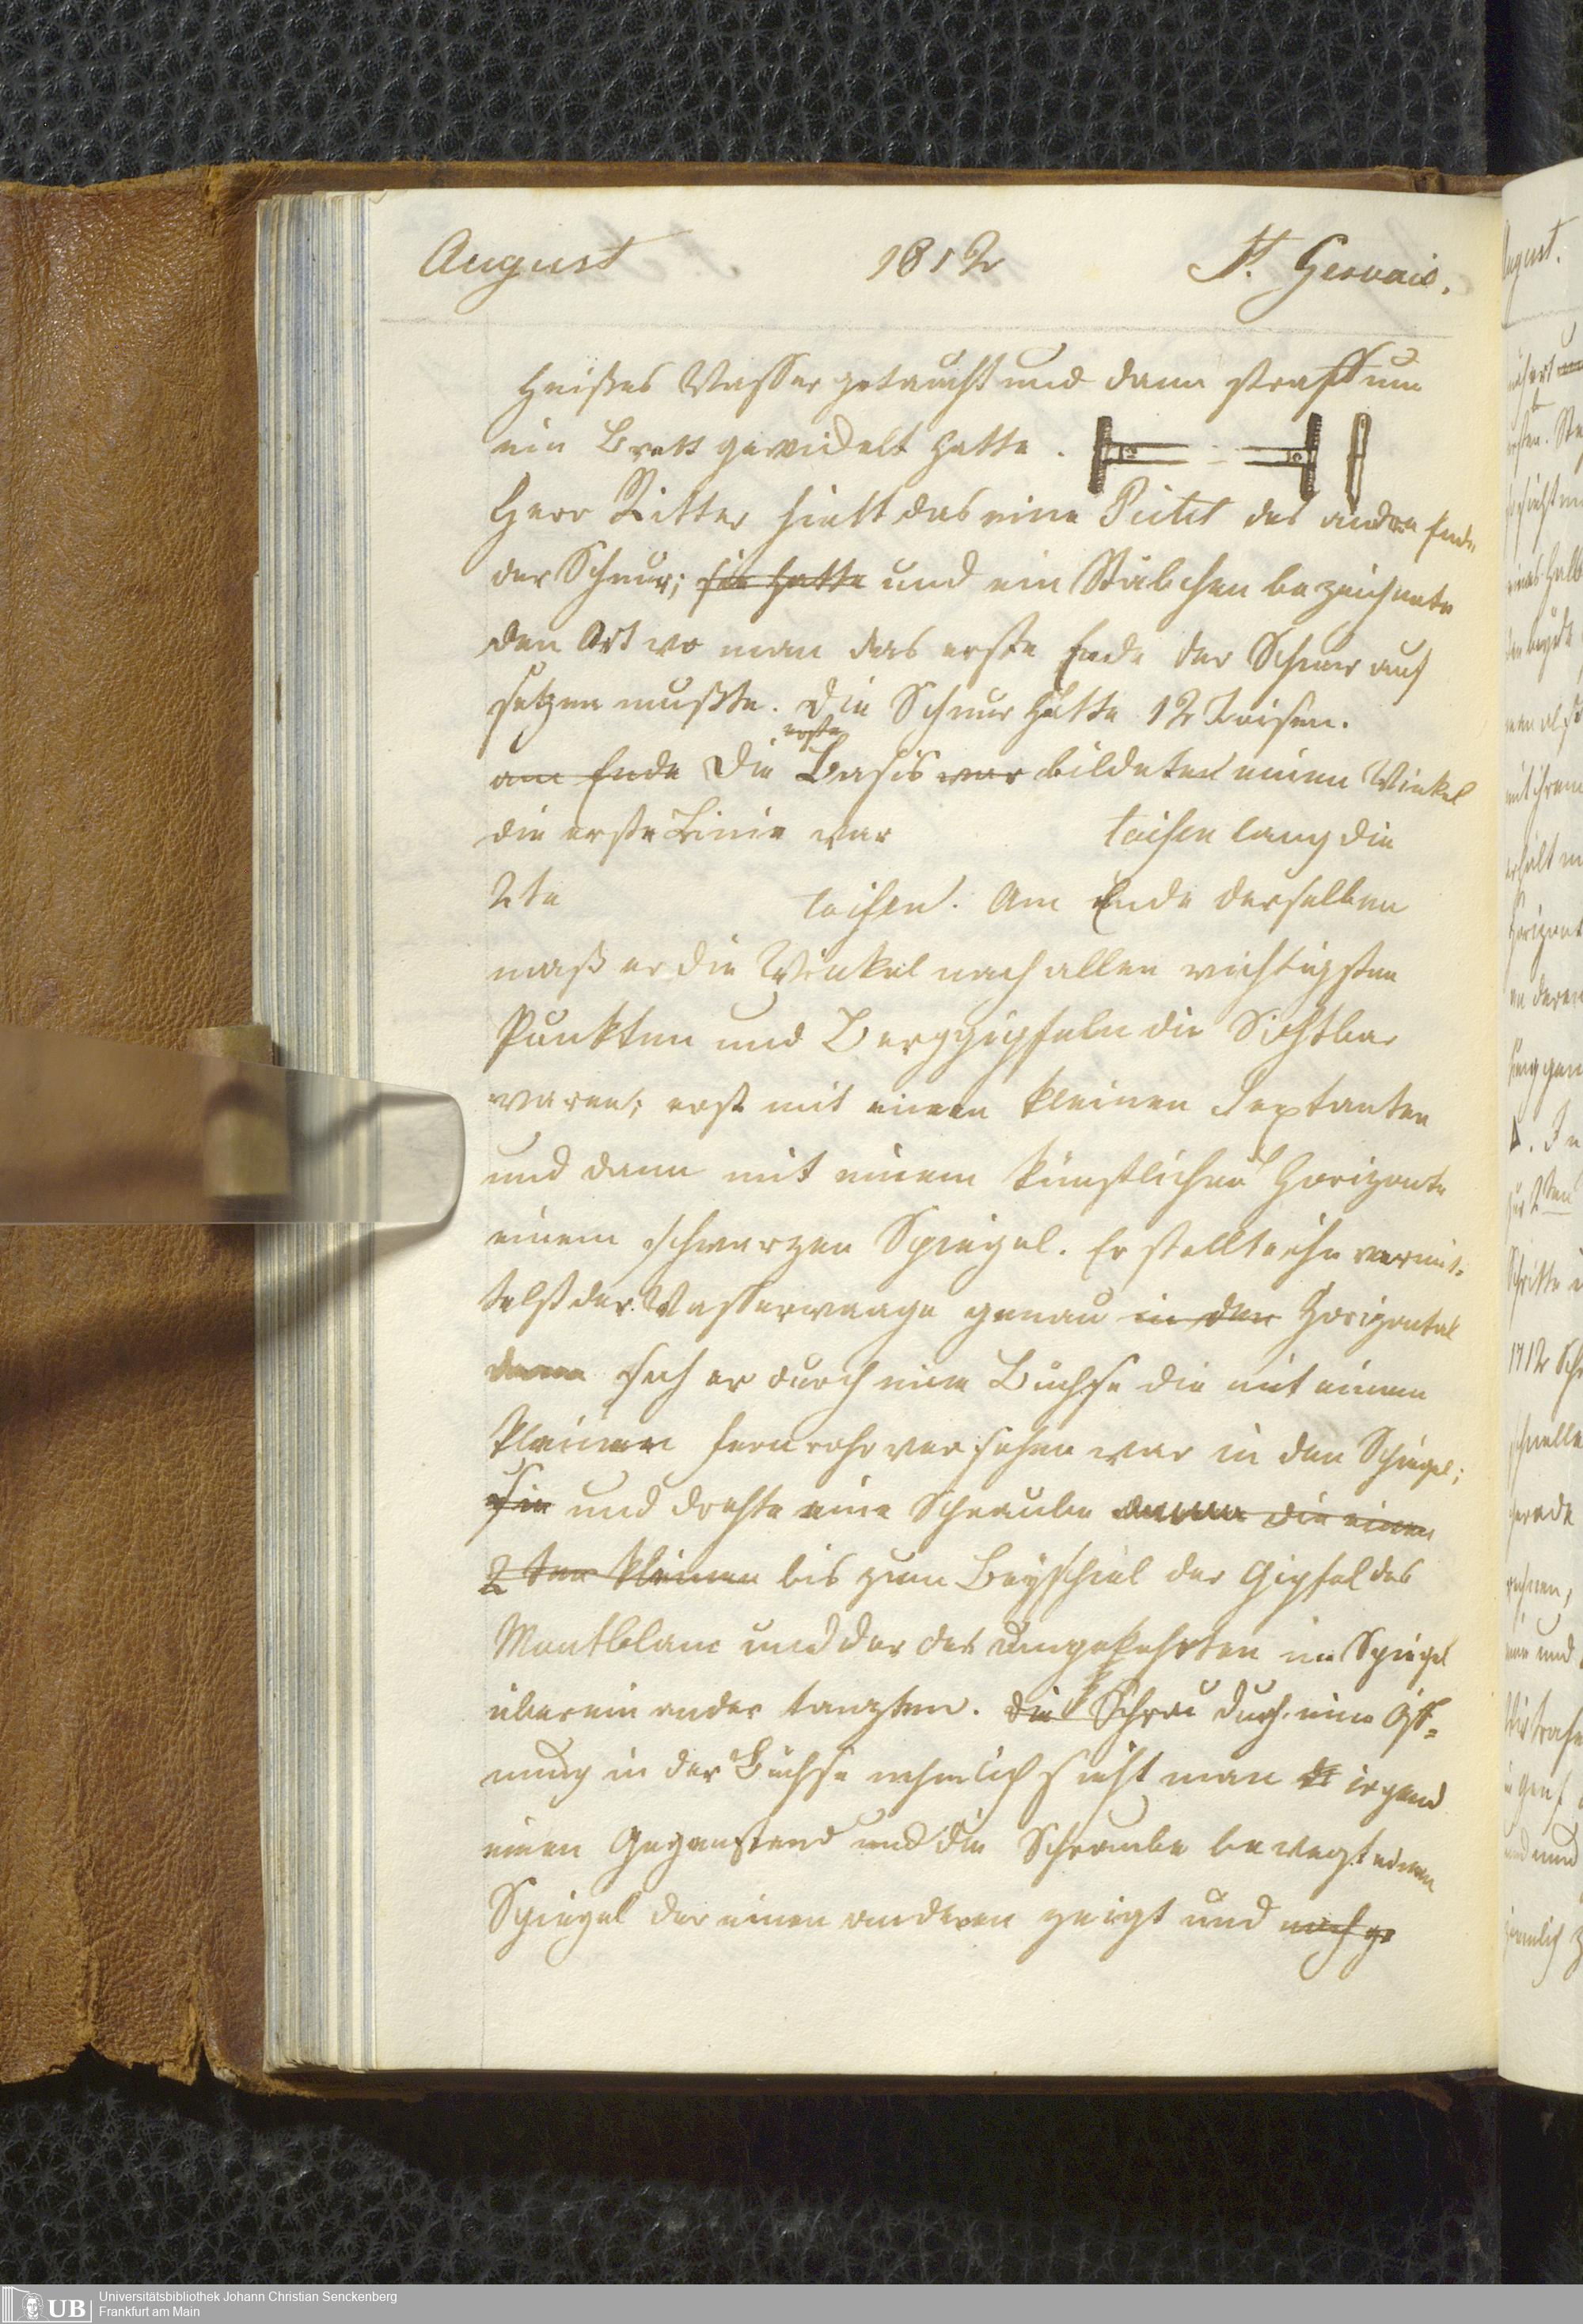 August 1812 St. Gervais.
heißes Wasser getaucht und dann straff um
ein Brett gewickelt hatte.
Herr Ritter hielt das eine Pictet das andre Ende
der Schnur; sie hatte und ein Stäbchen bezeichnete
den Ort wo man das erste Ende der Schnur auf
setzen mußte. Die Schnur hatte 12 Toisen.
erste
am Ende Die Basis war bildeten einen Winkel
die erste Linie war toisen lang die
2te toisen. Am Ende derselben
maß er die Winkel nach allen wichtigsten
Punkten und Berggipfeln die Sichtbar
waren; erst mit einem kleinen Sextanten
und dann mit einem künstlichen Horizonte
einem schwarzen Spiegel. Er stellte ihn vermit-
telst der Wasserwaage genau in den Horizontal
dann sah er durch eine Büchse die mit einem
kleinen Fernrohr versehen war in den Spiegel;
Sie und drehte eine Schraube die einen
2ten kleinen bis zum Beyspiel der Gipfel des
Montblanc und der des Umgekehrten im Spiegel
über einander tanzten. die Schrau durch eine Öff=
nung in der Büchse nehmlich sieht man irgend
einen Gegenstand und die Schraube bewegt einen
Spiegel der einen anderen zeigt und
August.
1712